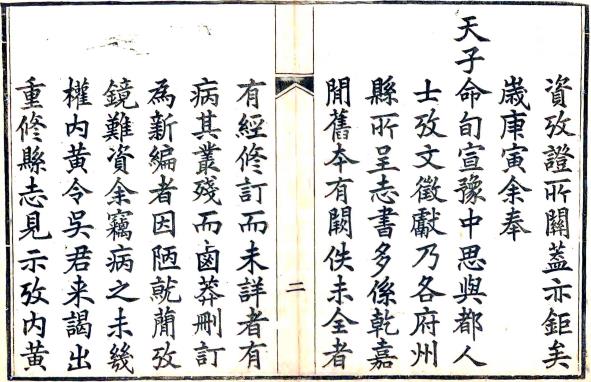 資攷證所關蓋亦鉅矣
歲庚寅余奉
天子命旬宣豫中思與都人
士攷文徵獻乃各府州
縣所呈志書多係乾嘉
間舊本有闕佚未全者
二
有經修訂而未詳者有
病其叢殘而鹵莽刪訂
為新編者因陋就蕳攷
鏡難資余竊病之未幾
權內黃令吳君来謁出
重修縣志見示攷內黃